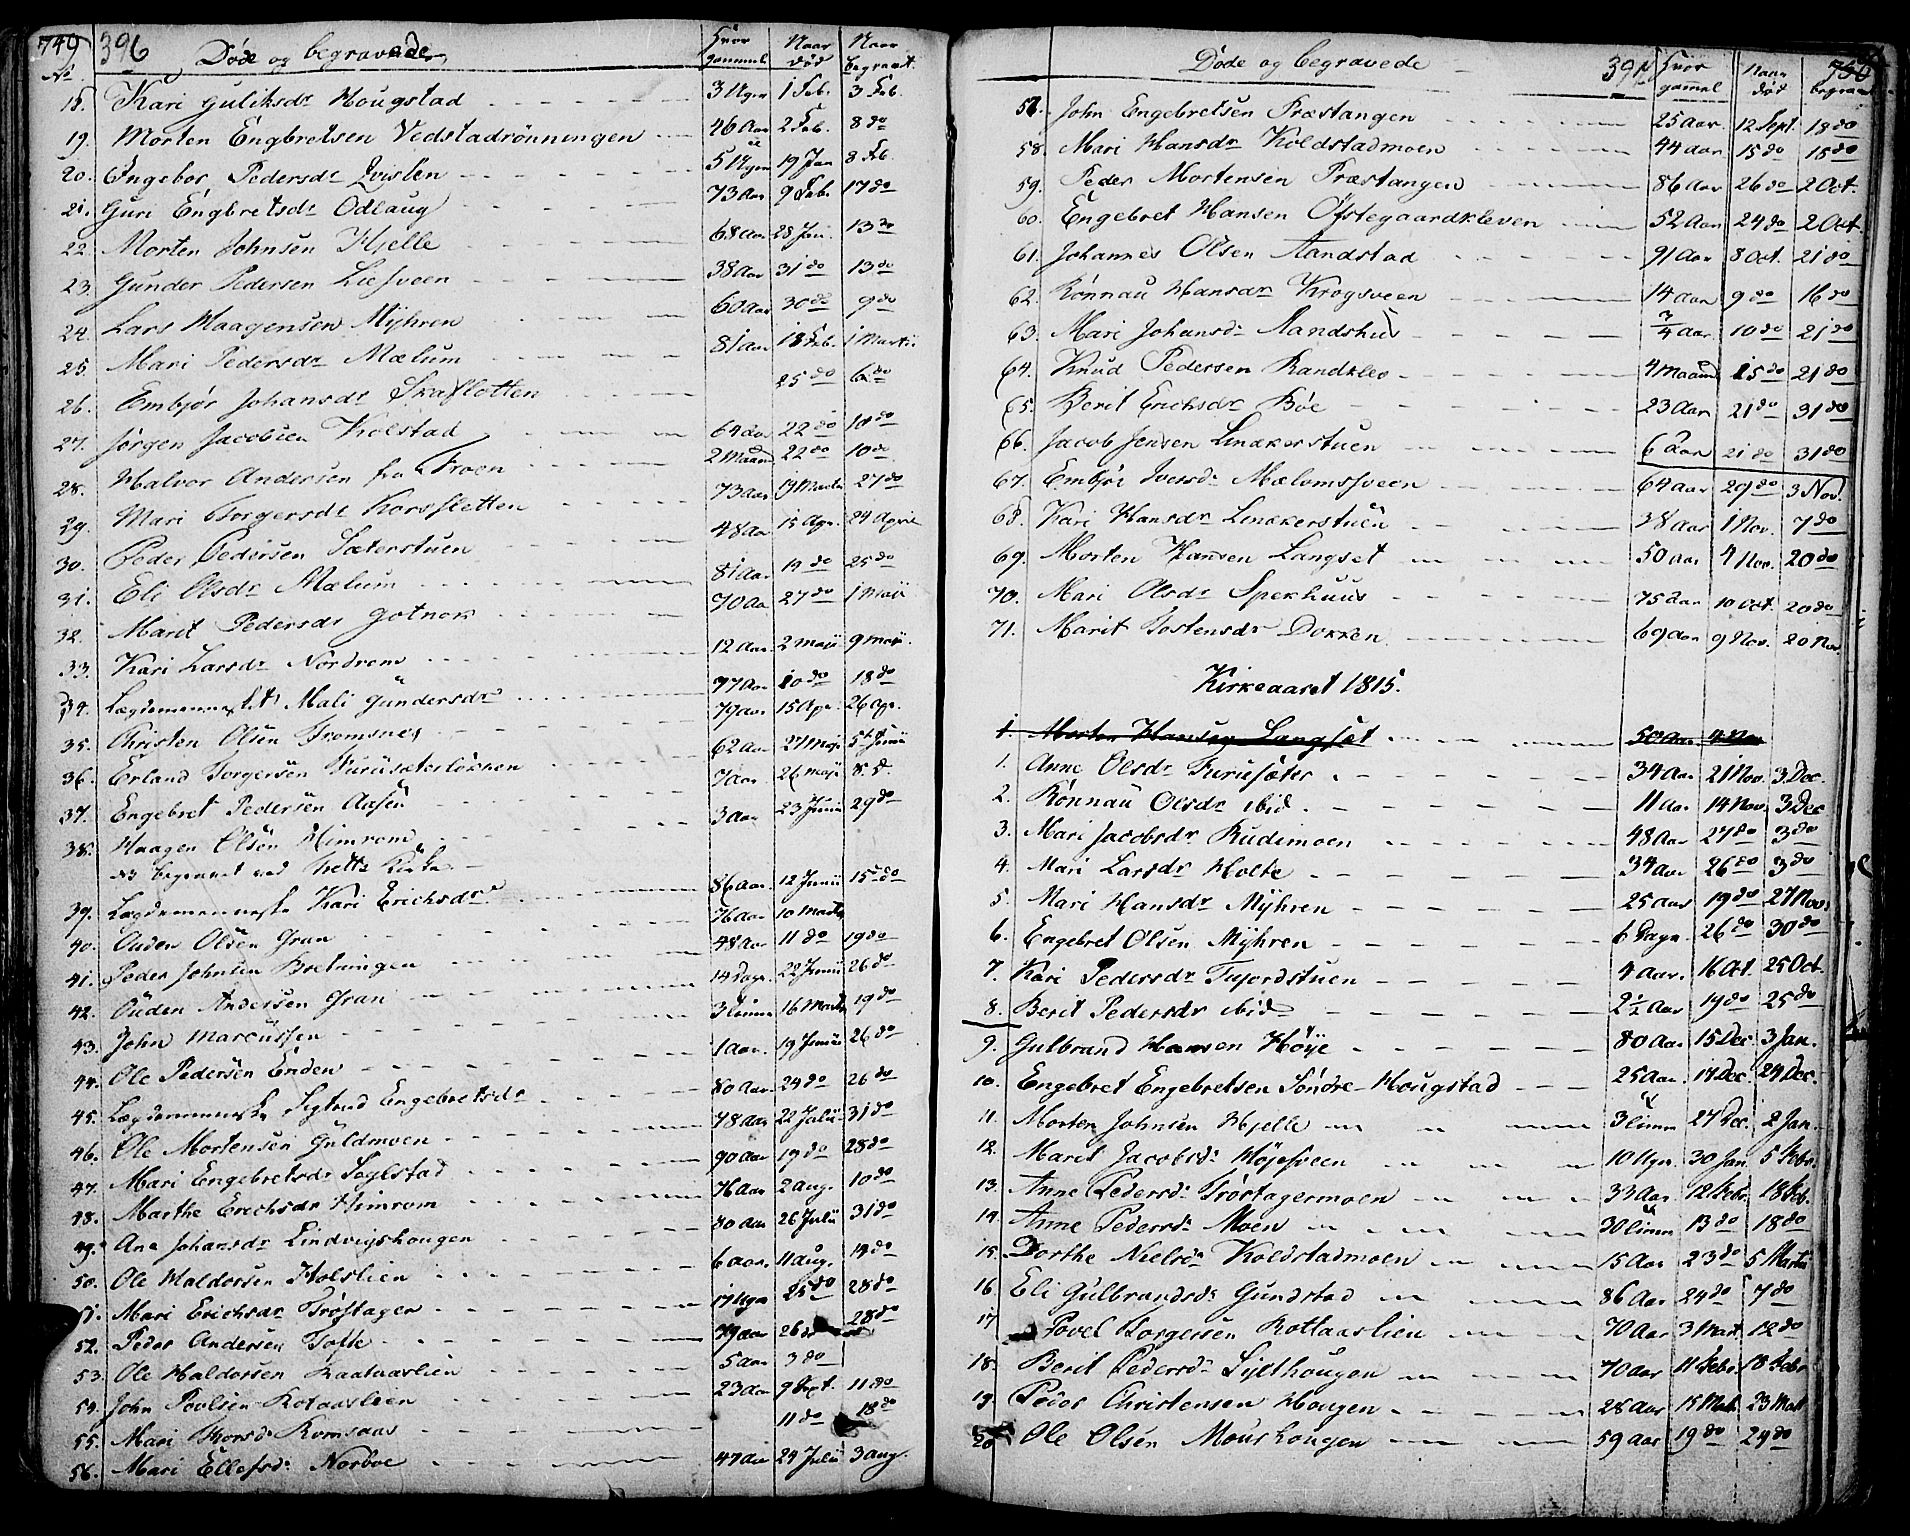 749 396 Døde og begravede Hvor gammel Naar død Naar begravet.
No
18. Kari Guliksdr Hougstad 3 Uger 1 Feb. 3 Feb.
19. Morten Engbretsen Vedstadrönningen 46 Aar 2 Feb. 8 do
20. Ingebor Pedersdr Qvislen 5 Uger 19 Jan 8 Feb
21. Guri Engbretsdr Odlaug 73 Aar 9 Feb. 17 do
22. Morten Johnsen Hjelle 68 Aar 28 Jan. 13 do
23. Gunder Pedersen Liesveen 38 Aar 31 do 13 do
24. Lars Haagensen Myhren 60 Aar 30 do 9 do
25. Mari Pedersdr Mælum 81 Aar 18 Feb. 1 Martii
26. Embjør Johansdr Skaslotten 25 do 6 do
27. Jørgen Jacobsen Kolstad 64 Aar 22 do 10 do
28. Halvor Andersen fra Froen 2 Maan 22 do 10 do
29. Mari Torgersdr Korssletten 73 Aar 19 Marti 27 do
30. Peder Pedersen Sæterstuen 48 Aar 15 Apr. 24 April
31. Eli Olsdr Mælum 81 Aar 19 do 25 do
32. Marit Pedersdr Gotnok 70 Aar 27 do 1 Maii
33. Kari Larsdr Nordrom 12 Aar 2 Maii 9 Maii.
34. Lægdemennesket Mali Gundersdr 77 Aar 10 do 18 do
35. Christen Olsen Tromsnes 79 Aar 15 Apr. 26 Apr.
36. Erland Torgersen Furusæterløkken 62 Aar 27 Maji 5t Junii
37. Engebret Pedersen Aasen 7 Aar 26 Maji 8. d.
38. Haagen Olsen Himrom 3 Aar 23 Junii 29 do
NB begravet ved Kirke
39. Lægdemenneske Kari Erichsdr 86 Aar 12 Junii 15 do
40. Ouden Olsen Gran 76 Aar 10 Marti
41. Peder Johnsen Bretningen 48 Aar 11 do 19 do
42. Ouden Andersen Gran 14 Dage 22 Junii 26 do
43. John Marcussen 3 timer 16 Marti 19 do
44. Ole Pedersen Enden 1 Aar. 19 Junii 26 do
45. Lægdemenneske Sigtrud Engebretsdr 80 Aar 24 do 26 do
46. Ole Mortensen Guldmoen 78 Aar 22 Julii 31 do
47. Mari Engebretsdr Seglstad 90 Aar 19 do 28 do
48. Marthe Erichsdr Himrom 76 Aar 2 Aug. 10 do
49. Ane Johansdr Lindvigshougen 80 Aar 26 Julii 31 do
50. Ole Haldorsen Holslien 6 Aar. 11 Aug. 14 do
51. Mari Erichsdr Trøstager 17 Uger 25 do 28 do
52. Peder Andersen Tofte 79 Aar 26 do 28 do
53. Ole Haldorsen Raataaslien 5 Aar 3 do
54. John Poulsen Rotaaslien 23 Aar 9 Sept. 11 do
55. Mari Thorsdr Romsaas 11 do 18 do
56. Mari Ellefsdr Norboe 47 Aar 24 Julii 3 Aug.
Døde og begravede 397 Hvor gamel Naar død Naar begravet 750
57. John Engebretsen Præstangen 25 Aar. 12 Sept. 18 do
58. Mari Hansdr Koldstadmoen 44 Aar 15 do 18 do
59. Peder Mortensen Præstangen 86 Aar 26 do 2 Oct.
60. Engebret Hansen Øfstegaardkleven 52 Aar 24 do 2 Oct.
61. Johannes Olsen Aandstad 91 Aar 8 Oct. 21 do
62. Rönnau Hansdr Krogsveen 14 Aar 9 do 16 do
63. Mari Johansdr Aandshus 3/4 Aar 10 do 21 do
64. Knud Pedersen Randklev 4 Maaned 15 do 21 do
65. Berit Erichsdr Böe 23 Aar 21 do 31 do
66. Jacob Jensen Linækerstuen 6 Aar 21 do 31 do
67. Embjør Iversdr Mælumssveen 64 Aar 29 do 3 Nov.
68. Kari Hansdr Linækerstuen 38 Aar 1 Nov. 7 do
69. Morten Hansen Langset 50 Aar 4 Nov. 20 do
70. Mari Olsdr Spekhuus 75 Aar 10 Oct. 20 do
71. Marit Tostensdr Dokken 69 Aar 9 Nov. 20 Nov.
Kirkeaaret 1815.
1. Morten Hansen Langset 50 Aar. 4 Nov
1. Anne Olsdr Furusæter 34 Aar 21 Nov. 3 Dec.
2. Rönnau Olsdr ibid. 11 Aar 14 Nov. 3 Dec
3. Mari Jacobsdr Rudimoen 48 Aar 27 do 3 do
4. Mari Larsdr Holte 34 Aar 26 do 3 do
5. Mari Hansdr Myhren 25 Aar 19 do 27 Nov.
6. Engebret Olsen Myhren 6 Dage 26 do 30 do
7. Kari Pedersdr Tufordstuen 4 Aar. 16 Oct. 25 Oct.
8. Berit Pedersdr ibid 2 1/2 Aar 19 do 25 do
9. Gulbrand Hansen Höije 80 Aar 15 Dec 3 Jan.
10. Engebret Engebretsen Söndre-Hougstad 25 Aar. 17 Dec. 29 Dec.
11. Morten Johnsen Hjelle 3 timer 27 Dec. 2 Jan.
12. Marit Jacobsdr Höjesveen 10 Uger. 30 Jan. 5 Febr.
13. Anne Pedersdr Tröstagermoen 33 Aar 12 Febr. 18 Feb.
14. Anne Pedersdr Moen 30 timer 13 do 18 do
15. Dorthe Nielsdr Koldstadmoen 15 Aar 23 do 5 Martii
16 Eli Gulbrandsdr Gundstad 86 Aar 24 do 7 do
17 Povel Torgersen Rottaaslien 70 Aar 3 Mart. 12 do
18. Berit Pedersdr Sylthougen 70 Aar 11 Febr. 18 Febr
19. Peder Christensen Hougen 28 Aar 15 Mart. 23 Mart
20 Ole Olsen Mourhougen 59 Aar 19 do 29 do